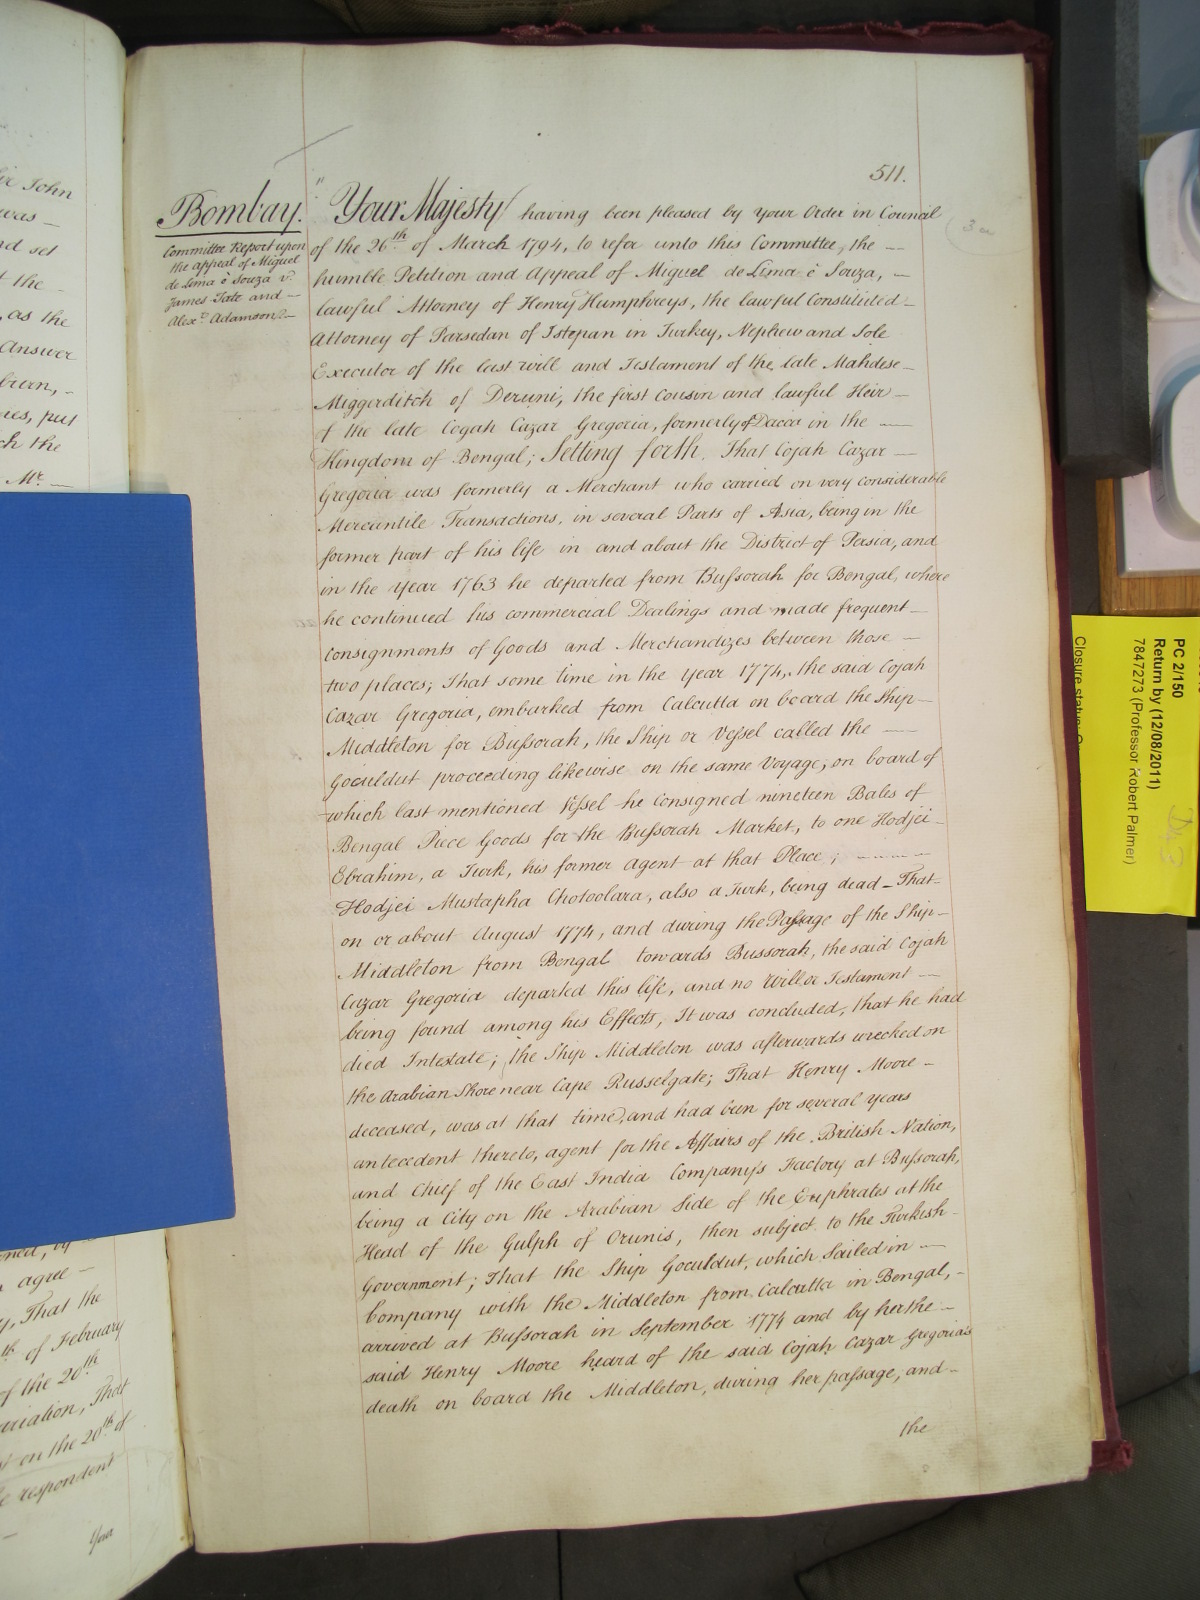 511.
Bombay.
Committee Report upon
the appeal of Miguel
de Lima è Souza v.
James Tate and —
Alexr. Adamson. —
" Your Majesty having been pleased by Your Order in Council
of the 26th of March 1794, to refer unto this Committee, the —
humble Petition and Appeal of Miguel de Lima è Souza, —
lawful Attorney of Henry Humphreys, the lawful Constituted —
Attorney of Parsedan of Istepan in Turkey, Nephew and Sole
Executor of the last will and Testament of the late Mahdese —
Miggerditch of Deruni, the first Cousin and lawful Heir —
of the late Cogah Cazar Gregoria, formerly of Dacca in the —
Kingdom of Bengal; Setting forth. That Cojah Cazar —
Gregoria was formerly a Merchant who carried on very considerable
Mercantile Transactions, in several Parts of Asia, being in the
former part of his life in and about the District of Persia, and
in the year 1763 he departed from Bussorah for Bengal, where
he continued his commercial Dealings and made frequent —
consignments of Goods and Merchandizes between those —
two places; That some time in the year 1774, the said Cojah
Cazar Gregoria, embarked from Calcutta on board the Ship —
Middleton for Bussorah, the Ship or Vessel called the —
Goculdut proceeding likewise on the same Voyage, on board of
which last mentioned Vessel he consigned nineteen Bales of
Bengal Piece Goods for the Bussorah Market, to one Hodjei —
Ebrahim, a Turk, his former Agent at that Place; — — — —
Hodjei Mustapha Chotoolara, also a Turk, being dead — That
on or about August 1774, and during the Passage of the Ship —
Middleton from Bengal towards Bussorah, the said Cojah
Cazar Gregoria departed this life, and no Will or Testament —
being found among his Effects, It was concluded, that he had
died Intestate; the Ship Middleton was afterwards wrecked on
the Arabian Shore near Cape Russelgate; That Henry Moore —
deceased, was at that time, and had been for several years
antecedent thereto, agent for the Affairs of the British Nation,
and Chief of the East India Company's Factory at Bussorah,
being a City on the Arabian Side of the Euphrates at the
Head of the Gulph of Ormus, then subject to the Turkish —
Government; That the Ship Goculdut, which Sailed in —
Company with the Middleton from Calcutta in Bengal, —
arrived at Bussorah in September 1774 and by her the —
said Henry Moore heard of the said Cojah Cazar Gregoria's
death on board the Middleton, during her passage, and —
the
Sir John
was —
and set
the —
, as the
Answer
put
ch the
Mr. —
agree —
, That the
th of February
of the 20th
That
on the 20th of
respondent
Your
PC 2/150
Return by (12/08/2011)
7847273 (Professor Robert Palmer)
Closure status: